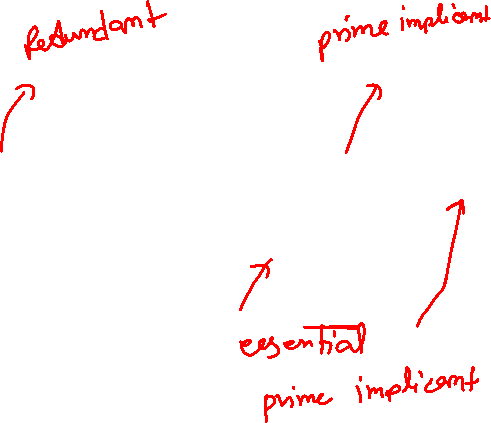 Redundant
prime implicant
essential
prime implicant